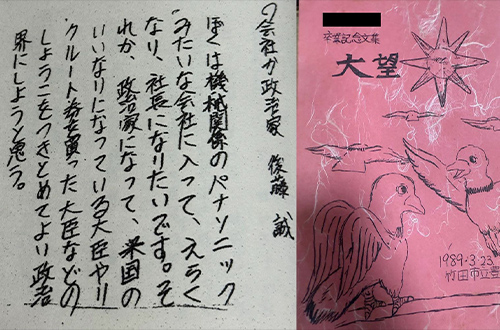 会社か政治家 後藤 誠
ぼくは機械関係のパナソニック
みたいな会社に入って、えらく
なり、社長になりたいです。そ
れか、政治家になって、米国の
いいなりになっている大臣やリ
クルート券を買った大臣などの
しょうこをつきとめてよい政治
界にしようと思う。
卒業記念文集
大望
1989・3・23
竹田市立